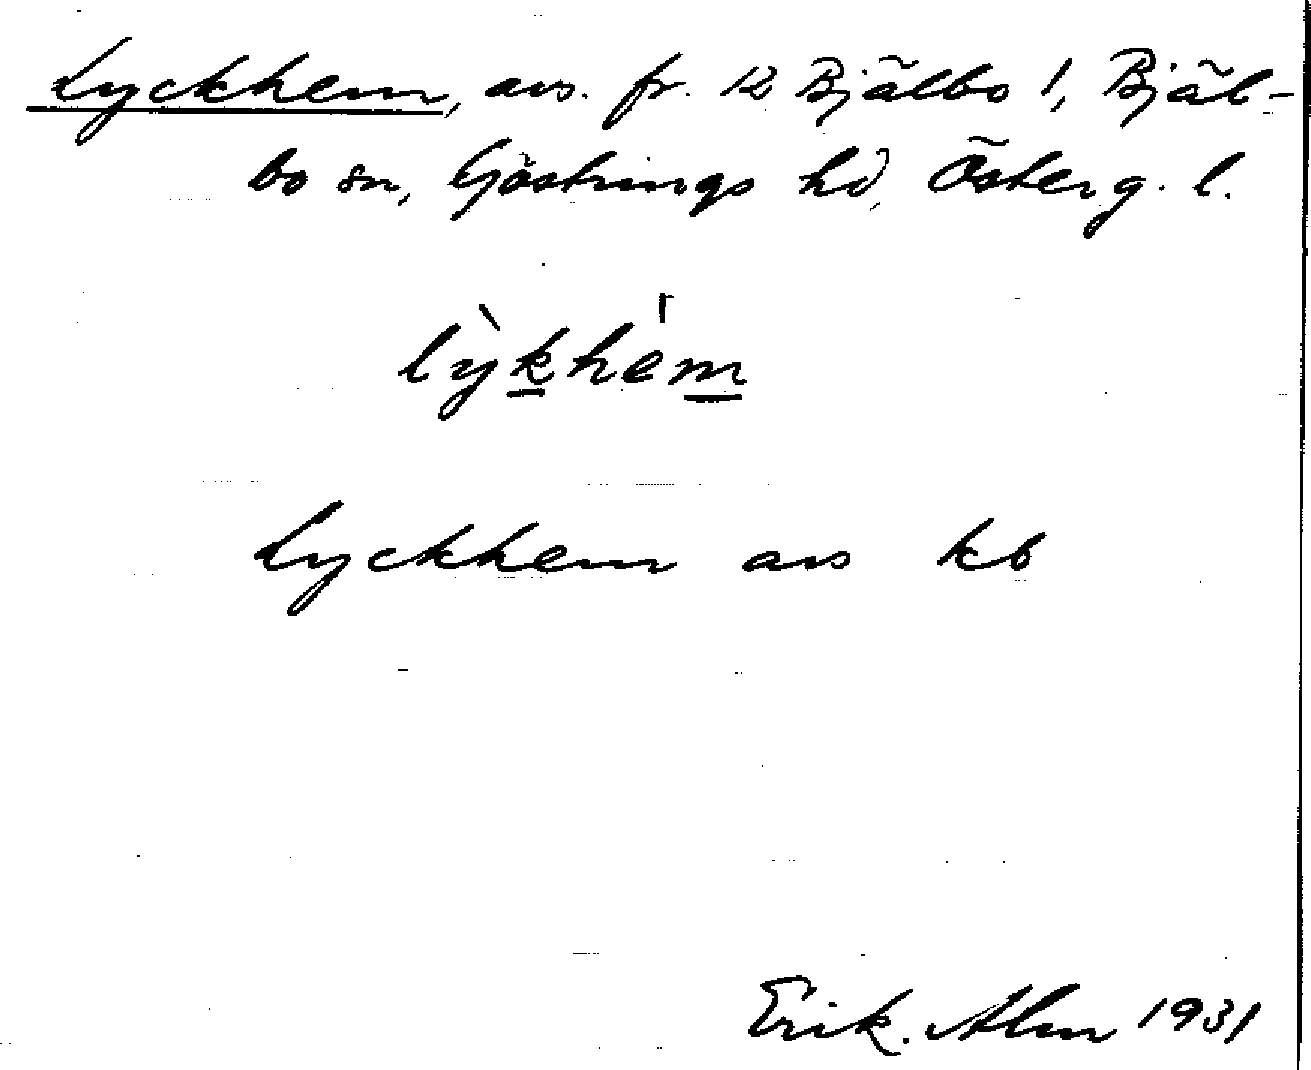 Lyckhem, avs. fr. 12 Bjälbo 1, Bjäl-
bo sn, Göstrings hd, Österg. l.
lỳkhém
Lyckhem avs kb
Erik. Alm 1931